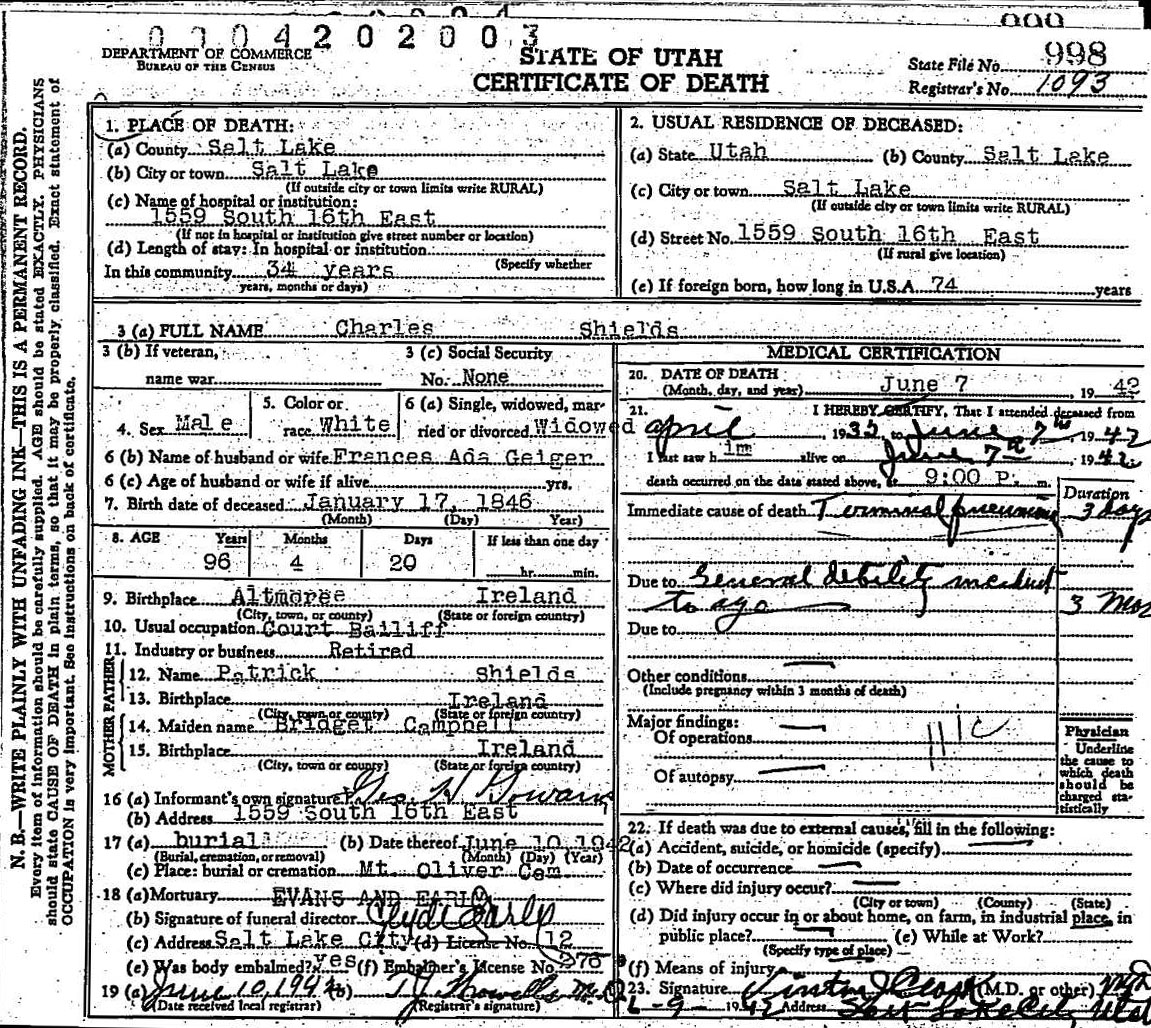 0 0 0 4 2 0 2 0 0 3
DEPARTMENT OF COMMERCE
BUREAU OF THE CENSUS
STATE OF UTAH
CERTIFICATE OF DEATH
State File No. 998
Registrar's No. 1093
N. B.—WRITE PLAINLY WITH UNFADING INK—THIS IS A PERMANENT RECORD.
Every item of information should be carefully supplied. AGE should be stated EXACTLY. PHYSICIANS
should state CAUSE OF DEATH in plain terms, so that it may be properly classified. Exact statement of
OCCUPATION is very important. See instructions on back of certificate.
1. PLACE OF DEATH:
(a) County Salt Lake
(b) City or town Salt Lake
(If outside city or town limits write RURAL)
(c) Name of hospital or institution:
1559 South 16th East
(If not in hospital or institution give street number or location)
(d) Length of stay: In hospital or institution
(Specify whether
In this community 34 years
years, months or days)
2. USUAL RESIDENCE OF DECEASED:
(a) State Utah (b) County Salt Lake
(c) City or town Salt Lake
(If outside city or town limits write RURAL)
(d) Street No. 1559 South 16th East
(If rural give location)
(e) If foreign born, how long in U.S.A. 74 years
3 (a) FULL NAME Charles Shields
3 (b) If veteran, 3 (c) Social Security
name war No. None
4. Sex Male 5. Color or race White 6 (a) Single, widowed, married or divorced Widowed
6 (b) Name of husband or wife Frances Ada Geiger
6 (c) Age of husband or wife if alive yrs.
7. Birth date of deceased January 17, 1846
(Month) (Day) Year)
8. AGE Years Months Days If less than one day
96 4 20 hr. min.
9. Birthplace Altmoree Ireland
(City, town, or county) (State or foreign country)
10. Usual occupation Court Bailiff
11. Industry or business Retired
FATHER
12. Name Patrick Shields
13. Birthplace Ireland
(City, town or county) (State or foreign country)
MOTHER
14. Maiden name Bridget Campbell
15. Birthplace Ireland
(City, town or county) (State or foreign country)
16 (a) Informant's own signature Geo. H. Gowans
(b) Address 1559 South 16th East
17 (a) burial (b) Date thereof June 10 1942
(Burial, cremation, or removal) (Month) (Day) (Year)
(c) Place: burial or cremation Mt. Oliver Cem.
18 (a) Mortuary EVANS AND EARLY
(b) Signature of funeral director Clyde Early
(c) Address Salt Lake City (d) License No. 12
(e) Was body embalmed? yes (f) Embalmer's License No. 276
19 (a) June 10, 1942 (b) T. J. Howells M.D.
(Date received local registrar) (Registrar's signature)
MEDICAL CERTIFICATION
20. DATE OF DEATH
(Month, day, and year) June 7, 19 42
21. I HEREBY CERTIFY, That I attended deceased from
April, 1935, to June 7th, 1942
I last saw him alive on June 7th, 1942
death occurred on the date stated above, at 9:00 P. m.
Duration
Immediate cause of death Terminal pneumonia 3 days
Due to General debility incident
to age 3 Mos
Due to
Other conditions
(Include pregnancy within 3 months of death)
Major findings:
Of operations
Of autopsy
Physician
Underline
the cause to
which death
should be
charged sta-
tistically
22. If death was due to external causes, fill in the following:
(a) Accident, suicide, or homicide (specify)
(b) Date of occurrence
(c) Where did injury occur?
(City or town) (County) (State)
(d) Did injury occur in or about home, on farm, in industrial place, in
public place? (e) While at Work?
(Specify type of place)
(f) Means of injury
23. Signature (M.D. or other) MD
6-9-1942 Address Salt Lake City Utah